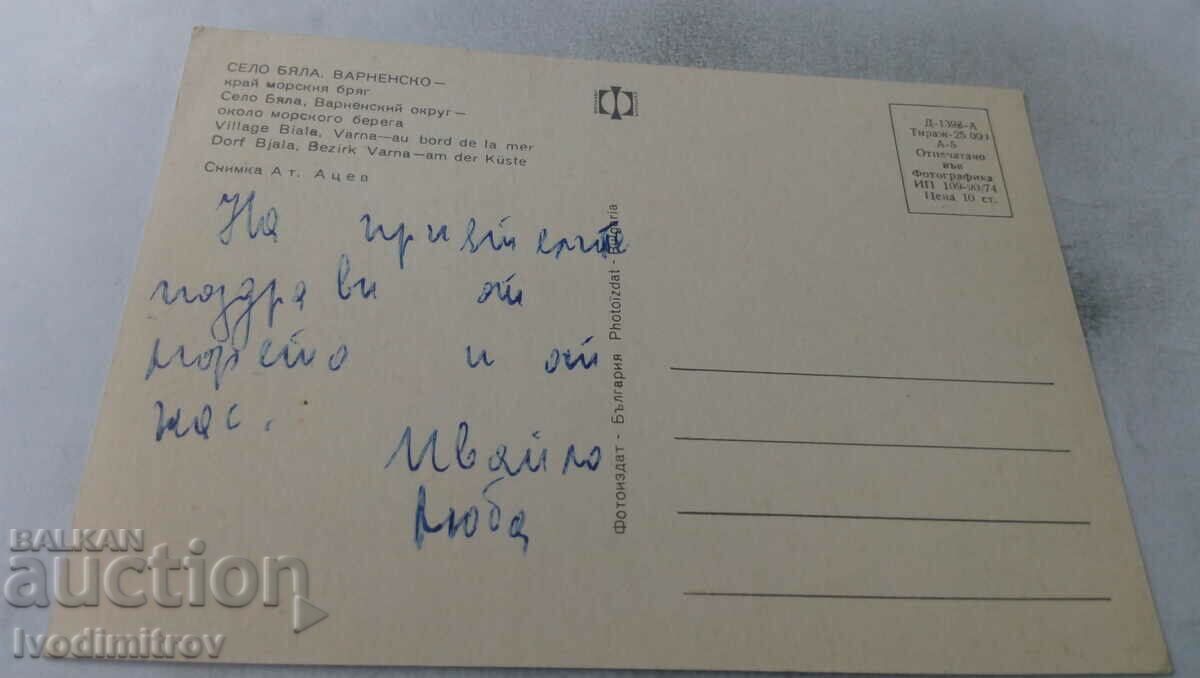 СЕЛО БЯЛА, ВАРНЕНСКО —
край морския бряг
Село Бяла, Варненский округ —
около морского берега
Village Biala, Varna—au bord de la mer
Dorf Bjala, Bezirk Varna—am der Küste
Снимка Ат. Ацев
На приятелите
поздрави от
морето и от
нас.
Ивайло
Люба
Фотоиздат - България Photoizdat - Bulgaria
Д-1398-А
Тираж-25 000
А-5
Отпечатано
във
Фотографика
ИП 109-90/74
Цена 10 ст.
BALKAN
auction
Ivodimitrov